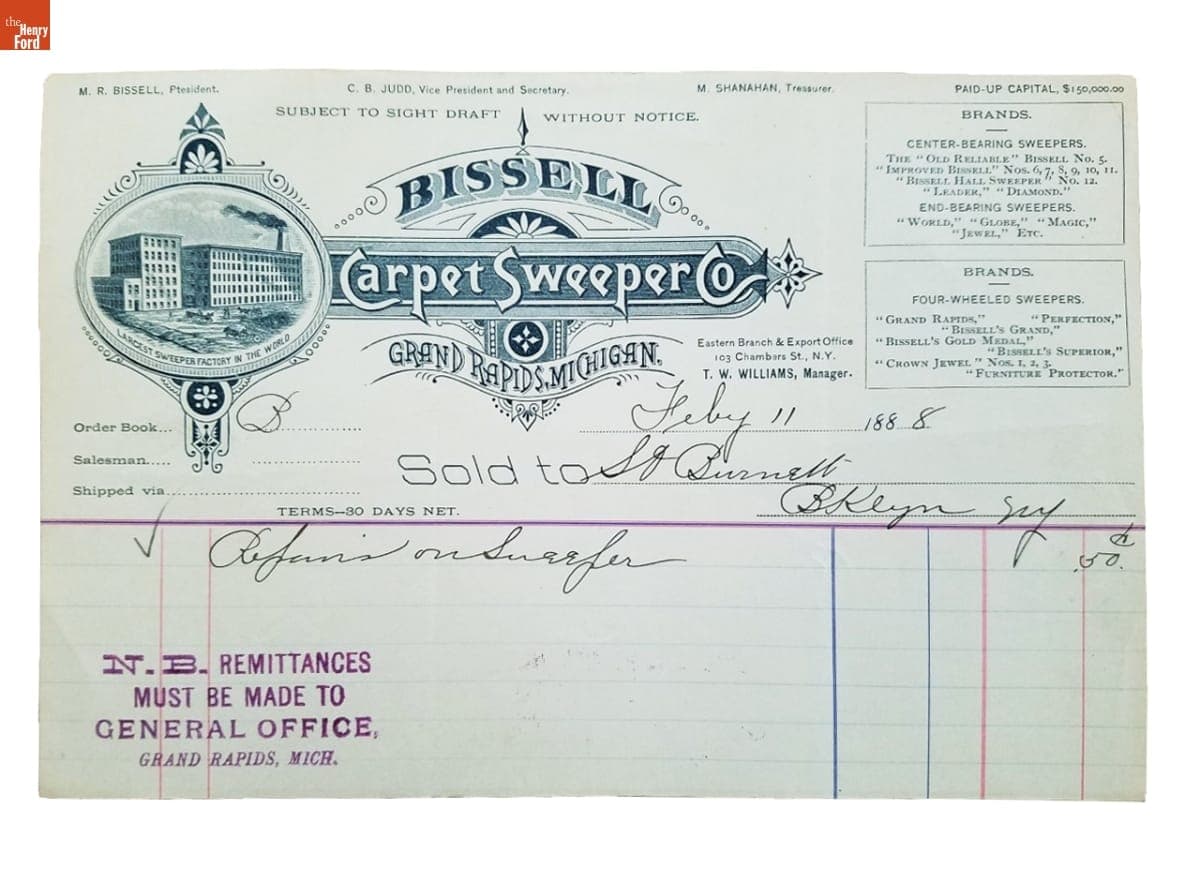 the
Henry
Ford
M. R. BISSELL, President.
C. B. JUDD, Vice President and Secretary.
M. SHANAHAN, Treasurer.
PAID-UP CAPITAL, $150,000.00
SUBJECT TO SIGHT DRAFT WITHOUT NOTICE.
BISSELL
Carpet Sweeper Co
GRAND RAPIDS, MICHIGAN.
LARGEST SWEEPER FACTORY IN THE WORLD
BRANDS.
CENTER-BEARING SWEEPERS.
THE "OLD RELIABLE" BISSELL NO. 5.
"IMPROVED BISSELL" NOS. 6, 7, 8, 9, 10, 11.
"BISSELL HALL SWEEPER" NO. 12.
"LEADER," "DIAMOND."
END-BEARING SWEEPERS.
"WORLD," "GLOBE," "MAGIC,"
"JEWEL," ETC.
BRANDS.
FOUR-WHEELED SWEEPERS.
"GRAND RAPIDS," "PERFECTION,"
"BISSELL'S GRAND,"
"BISSELL'S GOLD MEDAL,"
"BISSELL'S SUPERIOR,"
"CROWN JEWEL" NOS. 1, 2, 3.
"FURNITURE PROTECTOR."
Eastern Branch & Export Office
103 Chambers St., N.Y.
T. W. WILLIAMS, Manager.
Feby 11 1888
Order Book... B
Salesman.....
Shipped via
Sold to Burnett
BKlyn NY
TERMS—30 DAYS NET.
Repairs on Sweeper .50 ¢
N.B. REMITTANCES
MUST BE MADE TO
GENERAL OFFICE,
GRAND RAPIDS, MICH.